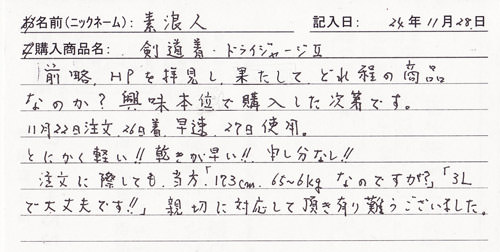 お名前(ニックネーム): 素浪人 記入日: 24年11月28日
ご購入商品名: 剣道着・ドライジャージⅡ
前略、HPを拝見し、果たしてどれ程の商品
なのか?興味本位で購入した次第です。
11月22日注文、26日着、早速、27日使用。
とにかく軽い!!乾きが早い!!申し分なし!!
注文に際しても、当方「173cm、65~6kgなのですが?」「3L
で大丈夫です!!」親切に対応して頂き有り難うございました。